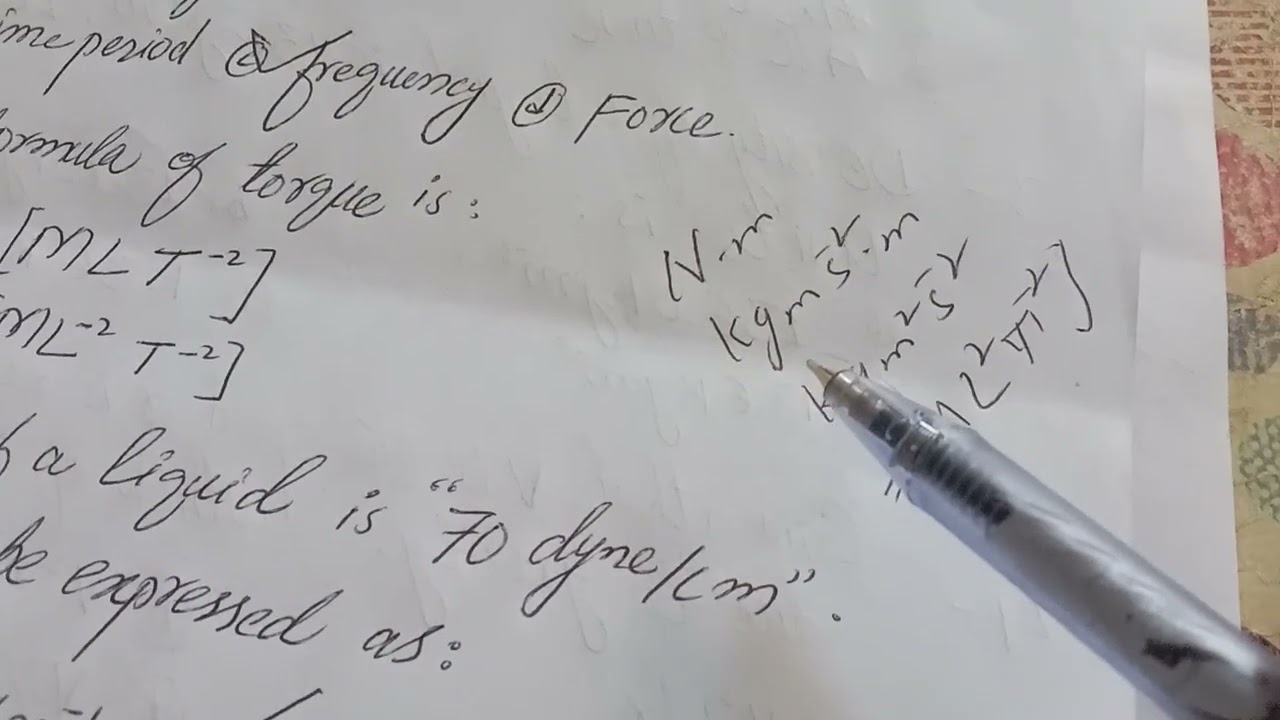 period ⓒ frequency ⓓ Force.
formula of torque is:
[ML T⁻²]
ML⁻² T⁻²]
a liquid is "70 dyne/cm".
be expressed as:
N.m
kgm s⁻².m
m² s⁻²
L² T⁻²]